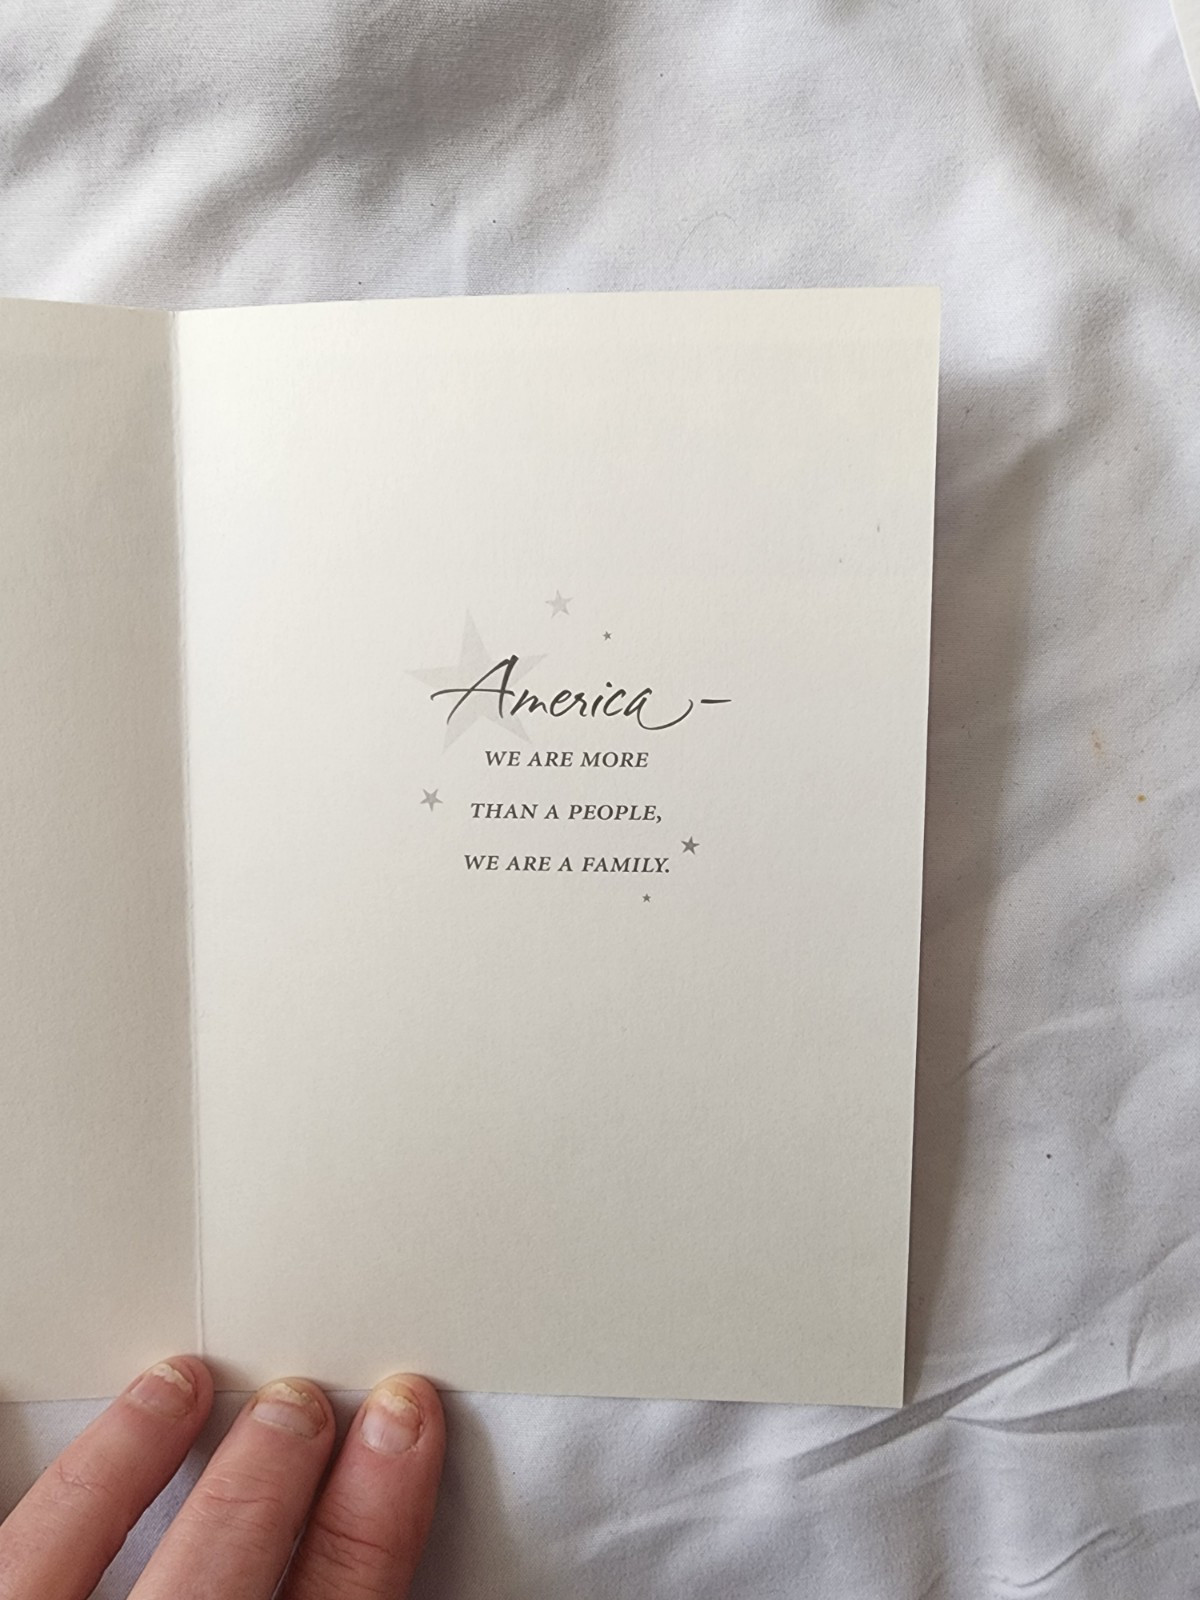 America–
WE ARE MORE
THAN A PEOPLE,
WE ARE A FAMILY.